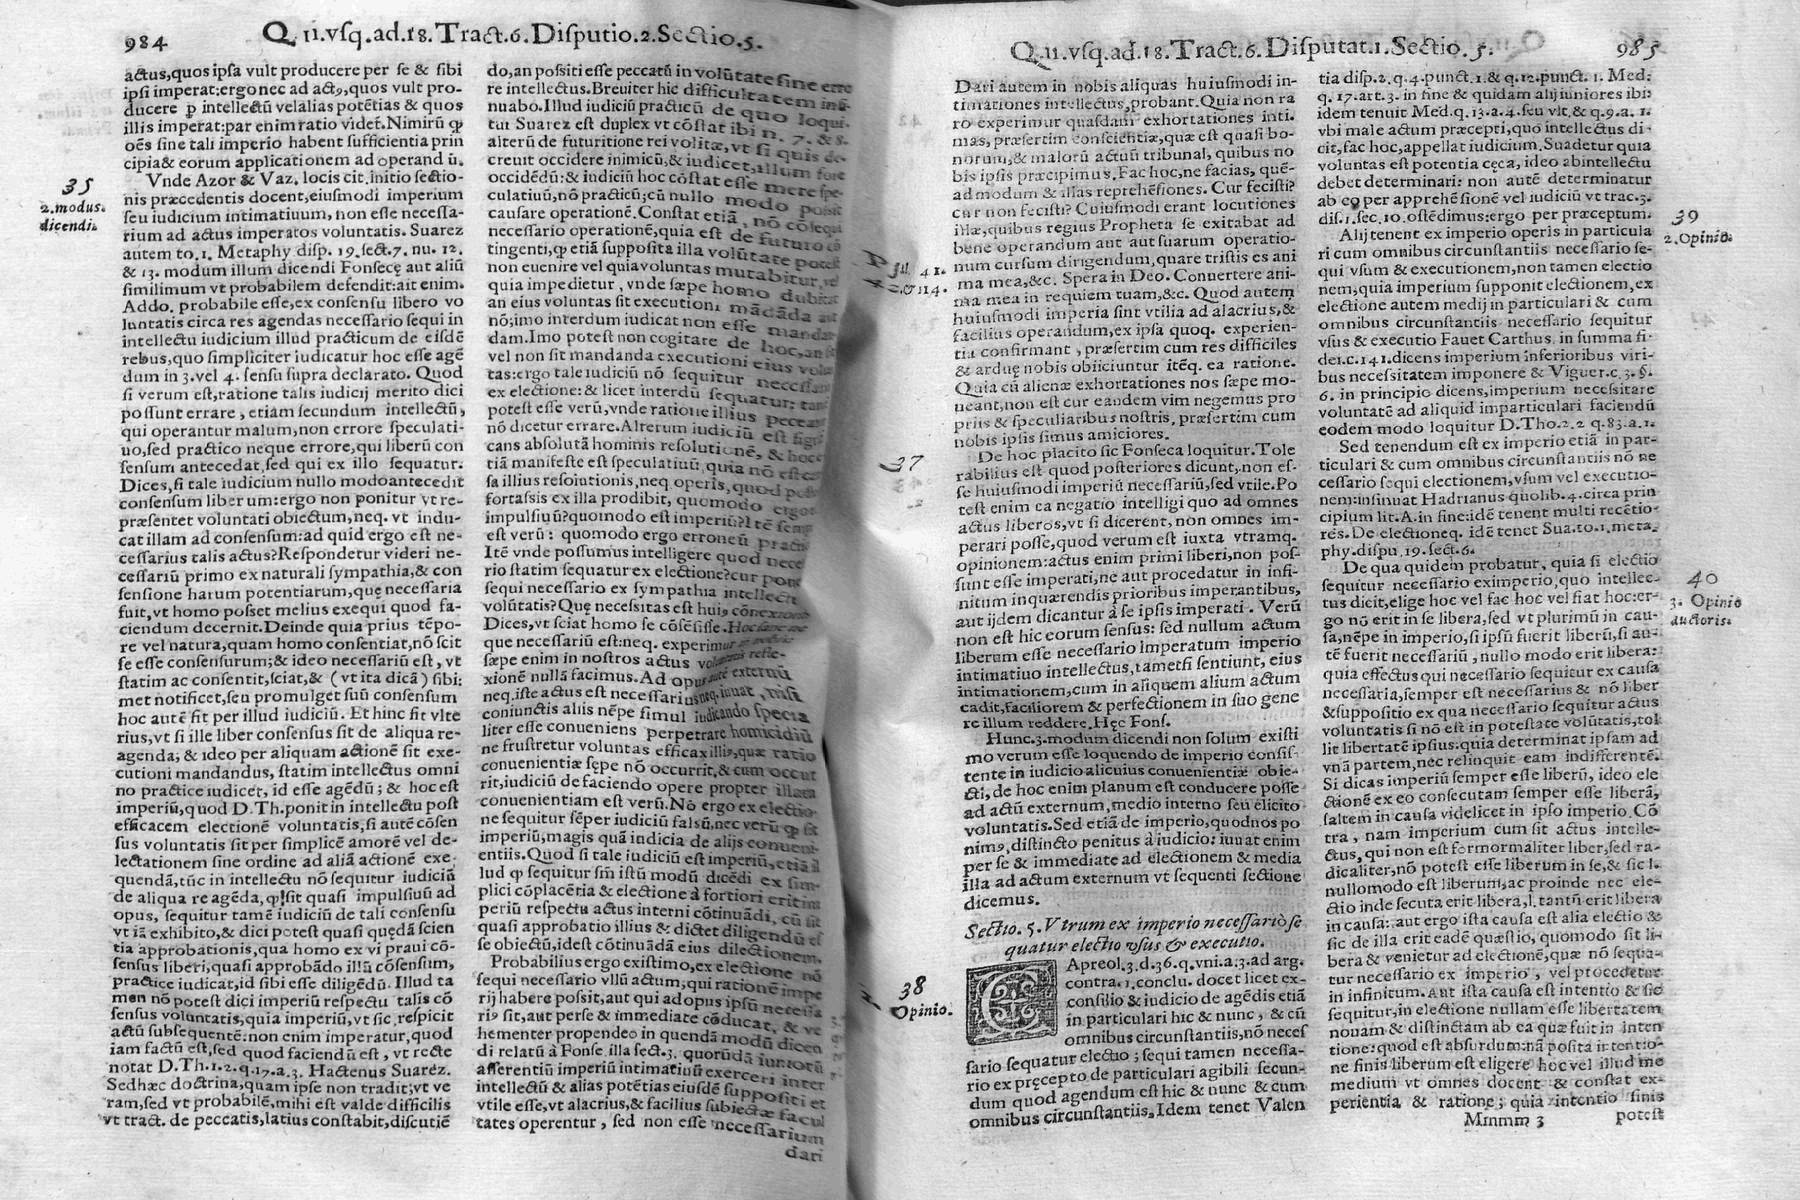 984
Q. 11. vſq. ad. 18. Tract. 6. Diſputio. 2. Sectio. 5.
actus, quos ipſa vult producere per ſe & ſibi
ipſi imperat: ergo nec ad actꝰ, quos vult pro-
ducere ꝑ intellectū velalias potētias & quos
illis imperat: par enim ratio videt̃. Nimirū ꝙ
oēs ſine tali imperio habent ſufficientia prin
cipia & eorum applicationem ad operand ū.
Vnde Azor & Vaz. locis cit. initio ſectio-
nis præcedentis docent, eiuſmodi imperium
ſeu iudicium intimatiuum, non eſſe neceſſa-
rium ad actus imperatos voluntatis. Suarez
autem to. 1. Metaphy diſp. 19. ſect. 7. nu. 12.
& 13. modum illum dicendi Fonſecę aut aliū
ſimilimum vt probabilem defendit: ait enim.
Addo. probabile eſſe, ex conſenſu libero vo
luntatis circa res agendas neceſſario ſequi in
intellectu iudicium illud practicum de eiſdē
rebus, quo ſimpliciter iudicatur hoc eſſe agē
dum in 3. vel 4. ſenſu ſupra declarato. Quod
ſi verum eſt, ratione talis iudicij merito dici
poſſunt errare, etiam ſecundum intellectū,
qui operantur malum, non errore ſpeculati-
uo, ſed practico neque errore, qui liberū con
ſenſum antecedat, ſed qui ex illo ſequatur.
Dices, ſi tale iudicium nullo modo antecedit
conſenſum liber um: ergo non ponitur vt re-
præſentet voluntati obiectum, neq. vt indu-
cat illam ad conſenſum: ad quid ergo eſt ne-
ceſſarius talis actus? Reſpondetur videri ne-
ceſſariū primo ex naturali ſympathia, & con
ſenſione harum potentiarum, quę neceſſaria
fuit, vt homo poſſet melius exequi quod fa-
ciendum decernit. Deinde quia prius tēpo-
re vel natura, quam homo conſentiat, nō ſcit
ſe eſſe conſenſurum; & ideo neceſſariū eſt, vt
ſtatim ac conſentit, ſciat, & (vt ita dicā) ſibi:
met notificet, ſeu promulget ſuū conſenſum
hoc autē fit per illud iudiciū. Et hinc fit vlte
rius, vt ſi ille liber conſenſus ſit de aliqua re-
agenda, & ideo per aliquam actionē ſit exe-
cutioni mandandus, ſtatim intellectus omni
no practice iudicet, id eſſe agēdū; & hoc eſt
imperiū, quod D. Th. ponit in intellectu poſt
efficacem electionē voluntatis, ſi autē cōſen
ſus voluntatis ſit per ſimplicē amorē vel de-
lectationem ſine ordine ad aliā actionē exe-
quendā, tūc in intellectu nō ſequitur iudiciū
de aliqua re agēda, qđ ſit quaſi impulſiuū ad
opus, ſequitur tamē iudiciū de tali conſenſu
vt iā exhibito, & dici poteſt quaſi quędā ſcien
tia approbationis, qua homo ex vi praui cō-
ſenſus liberi, quaſi approbādo illū cōſenſum,
practice iudicat, id ſibi eſſe diligēdū. Illud ta
men nō poteſt dici imperiū reſpectu talis cō
ſenſus voluntatis, quia imperiū, vt ſic, reſpicit
actū ſubſequentē: non enim imperatur, quod
iam factū eſt, ſed quod faciendū eſt, vt recte
notat D. Th. 1. 2. q. 17. a. 3. Hactenus Suarez.
Sed hæc doctrina, quam ipſe non tradit; vt ve
ram, ſed vt probabilē, mihi eſt valde difficilis
vt tract. de peccatis, latius conſtabit, diſcutiē
35
2. modus.
dicendi.
do, an poſſiti eſſe peccatū in volūtate ſine erro
re intellectus. Breuiter hic difficultatem inſi-
nuabo. Illud iudiciū practicū de quo loqui-
tur Suarez eſt duplex vt cōſtat ibi n. 7. & 8.
alterū de futuritione rei volitæ, vt ſi quis de-
creuit occidere inimicū, & iudicet, illum fore
occidēdū: & iudiciū hoc cōſtat eſſe mere ſpe-
culatiuū, nō practicū; cū nullo modo poſſit
cauſare operationē. Conſtat etiā, nō cōſequi
neceſſario operationē, quia eſt de futuro cō
tingenti, ꝙ etiā ſuppoſita illa volūtate poteſt
non euenire vel quia voluntas mutabitur, vel
quia impedietur, vnde ſæpe homo dubitat
an eius voluntas ſit executioni mādāda aut
nō; imo interdum iudicat non eſſe mandan
dam. Imo poteſt non cogitare de hoc, an ſit
vel non ſit mandanda executioni eius volū
tas: ergo tale iudiciū nō ſequitur neceſſario
ex electione: & licet interdū ſequatur; tamē
poteſt eſſe verū, vnde ratione illius peccans
nō dicetur errare. Alterum iudiciū eſt ſignifi
cans abſolutā hominis reſolutionē, & hoc e
tiā manifeſte eſt ſpeculatiuū, quia nō eſt cau
ſa illius reſolutionis, neq. operis, quod poſt
fortaſsis ex illa prodibit, quomodo ergo
impulſiuū? quomodo eſt imperiū? Itē ſemp
eſt verū: quomodo ergo erroneū practice
Itē vnde poſſumus intelligere quod neceſſa
rio ſtatim ſequatur ex electione? cur potius
ſequi neceſſario ex ſympathia intellectus
volūtatis? Quę neceſsitas eſt huiꝰ cōnexionis
Dices, vt ſciat homo ſe cōſēſiſſe. Hoc ſane ne
que neceſſariū eſt: neq. experimur in nobis:
ſæpe enim in noſtros actus voluntatis refle-
xionē nullā facimus. Ad opus autē externū
neq. iſte actus eſt neceſſarius neq. iuuat, niſi
coniunctis aliis nēpe ſimul iudicando ſpecia
liter eſſe conueniens perpetrare homicidiū
ne fruſtretur voluntas efficax illiꝰ, quæ ratio
conuenientiæ ſępe nō occurrit, & cum occur
rit, iudiciū de faciendo opere propter illam
conuenientiam eſt verū. Nō ergo ex electio-
ne ſequitur ſēper iudiciū falſū, nec verū ꝙ ſit
imperiū, magis quā iudicia de alijs conueni-
entiis. Quod ſi tale iudiciū eſt imperiū, etiā il
lud ꝙ ſequitur ſm̄ iſtū modū dicēdi ex ſim-
plici cōplacētia & electione à fortiori erit im
periū reſpectu actus interni cōtinuādi, cū ſit
quaſi approbatio illius & dictet diligendū eſ
ſe obiectū, ideſt cōtinuādā eius dilectionem.
Probabilius ergo exiſtimo, ex electione nō
ſequi neceſſario vllū actum, qui rationē impe
rij habere poſſit, aut qui ad opus ipſū neceſſa
riꝰ ſit, aut per ſe & immediate cōducat, & ve
hementer propendeo in quendā modū dicen
di relatū à Fonſe. illa ſect. 3. quorūdā iuniorū
aſſerentiū imperiū intimatiuū exerceri inter
intellectū & alias potētias eiuſdē ſuppoſiti et
vtile eſſe, vt alacrius, & facilius ſubiectæ facul
tates operentur, ſed non eſſe neceſſarium
dari
985
Q. 11. vſq. ad. 18. Tract. 6. Diſputat. 1. Sectio. 5.
Dari autem in nobis aliquas huiuſmodi in-
timationes intellectus, probant. Quia non ra
ro experimur quaſdam exhortationes inti-
mas, præſertim conſcientiæ, quæ eſt quaſi bo-
norum, & malorū actuū tribunal, quibus no
bis ipſis præcipimus. Fac hoc, ne facias, quē-
ad modum & illas reprehēſiones. Cur feciſti?
cur non feciſti? Cuiuſmodi erant locutiones
illæ, quibus regius Propheta ſe exitabat ad
bene operandum aut aut ſuarum operatio-
num curſum dirigendum, quare triſtis es ani
ma mea, &c. Spera in Deo. Conuertere ani-
ma mea in requiem tuam, &c. Quod autem
huiuſmodi imperia ſint vtilia ad alacrius, &
facilius operandum, ex ipſa quoq. experien-
tia confirmant, præſertim cum res difficiles
& arduę nobis obiiciuntur itēq. ea ratione.
Quia cū alienæ exhortationes nos ſæpe mo-
ueant, non eſt cur eandem vim negemus pro
priis & ſpeculiaribus noſtris, præſertim cum
nobis ipſis ſimus amiciores.
De hoc placito ſic Fonſeca loquitur. Tole
rabilius eſt quod poſteriores dicunt, non eſ-
ſe huiuſmodi imperiū neceſſariū, ſed vtile. Po
teſt enim ea negatio intelligi quo ad omnes
actus liberos, vt ſi dicerent, non omnes im-
perari poſſe, quod verum eſt iuxta vtramq.
opinionem: actus enim primi liberi, non poſ-
ſunt eſſe imperati, ne aut procedatur in infi-
nitum inquærendis prioribus imperantibus,
aut ijdem dicantur à ſe ipſis imperati. Verū
non eſt hic eorum ſenſus: ſed nullum actum
liberum eſſe neceſſario imperatum imperio
intimatiuo intellectus, tametſi ſentiunt, eius
intimationem, cum in aliquem alium actum
cadit, faciliorem & perfectionem in ſuo gene
re illum reddere. Hęc Fonſ.
Hunc. 3. modum dicendi non ſolum exiſti
mo verum eſſe loquendo de imperio conſiſ-
tente in iudicio alicuius conuenientiæ obie-
cti, de hoc enim planum eſt conducere poſſe
ad actū externum, medio interno ſeu elicito
voluntatis. Sed etiā de imperio, quod nos po
nimꝰ, diſtincto penitus à iudicio: iuuat enim
per ſe & immediate ad electionem & media
illa ad actum externum vt ſequenti ſectione
dicemus.
Sectio. 5. Vtrum ex imperio neceſſariò ſe
quatur electio vſus & executio.
CApreol. 3. d. 36. q. vni. a. 3. ad arg.
contra. 1. conclu. docet licet ex-
conſilio & iudicio de agēdis etiā
in particulari hic & nunc, & cū
omnibus circunſtantiis, nō neceſ
ſario ſequatur electio; ſequi tamen neceſſa-
rio ex pręcepto de particulari agibili ſecun-
dum quod agendum eſt hic & nunc & cum
omnibus circunſtantiis. Idem tenet Valen
Pſal. 41.
42. & 114.
37
38
1. Opinio.
tia diſp. 2. q. 4. punct. 1. & q. 12. punct. 1. Med.
q. 17. art. 3. in fine & quidam alij iuniores ibi:
idem tenuit Med. q. 13. a. 4. ſeu vlt. & q. 9. a. 1.
vbi male actum præcepti, quo intellectus di-
cit, fac hoc, appellat iudicium. Suadetur quia
voluntas eſt potentia cęca, ideo ab intellectu
debet determinari: non autē determinatur
ab eo per apprehēſionē vel iudiciū vt trac. 3.
diſ. 1. ſec. 10. oſtēdimus: ergo per præceptum.
Alij tenent ex imperio operis in particula
ri cum omnibus circunſtantiis neceſſario ſe-
qui vſum & executionem, non tamen electio
nem, quia imperium ſupponit electionem, ex
electione autem medij in particulari & cum
omnibus circunſtantiis neceſſario ſequitur
vſus & executio Fauet Carthus. in ſumma fi-
dei. c. 141. dicens imperium inferioribus viri-
bus neceſsitatem imponere & Viguer. c. 3. §.
6. in principio dicens, imperium neceſsitare
voluntatē ad aliquid imparticulari faciendū
eodem modo loquitur D. Tho. 2. 2 q. 83. a. 1.
Sed tenendum eſt ex imperio etiā in par-
ticulari & cum omnibus circunſtantiis nō ne
ceſſario ſequi electionem, vſum vel executio-
nem: inſinuat Hadrianus quolib. 4. circa prin
cipium lit. A. in fine: idē tenent multi recētio-
rēs. De electione q. idē tenet Sua. to. 1. meta-
phy. diſpu. 19. ſect. 6.
De qua quidem probatur, quia ſi electio
ſequitur neceſſario ex imperio, quo intellec-
tus dicit, elige hoc vel fac hoc vel fiat hoc: er-
go nō erit in ſe libera, ſed vt plurimū in cau-
ſa, nēpe in imperio, ſi ipſū fuerit liberū, ſi au-
tē fuerit neceſſariū, nullo modo erit libera:
quia effectus qui neceſſario ſequitur ex cauſa
neceſſaria, ſemper eſt neceſſarius & nō liber
& ſuppoſitio ex qua neceſſario ſequitur actus
voluntatis ſi nō eſt in poteſtate volūtatis, tol
lit libertatē ipſius: quia determinat ipſam ad
vnā partem, nec relinquit eam indifferentē.
Si dicas imperiū ſemper eſſe liberū, ideo ele
ctionē ex eo conſecutam ſemper eſſe liberā,
ſaltem in cauſa videlicet in ipſo imperio. Cō
tra, nam imperium cum ſit actus intelle-
ctus, qui non eſt formormaliter liber, ſed ra-
dicaliter, nō poteſt eſſe liberum in ſe, & ſic l.
nullomodo eſt liberum, ac proinde nec ele-
ctio inde ſecuta erit libera, l. tantū erit libera
in cauſa: aut ergo iſta cauſa eſt alia electio &
ſic de illa erit eadē quæſtio, quomodo ſit li-
bera & venietur ad electionē, quæ nō ſequa-
tur neceſſario ex imperio, vel procedetur
in infinitum. Aut iſta cauſa eſt intentio & ſic
ſequitur, in electione nullam eſſe libertatem
nouam & diſtinctam ab ea quæ fuit in inten
tione: quod eſt abſurdum: nā poſita intentio-
ne finis liberum eſt eligere hoc vel illud me
medium vt omnes docent & conſtat ex-
perientia & ratione; quia intentio finis
Mmmm 3
poteſt
39
2. Opinio.
40
3. Opinio
auctoris.